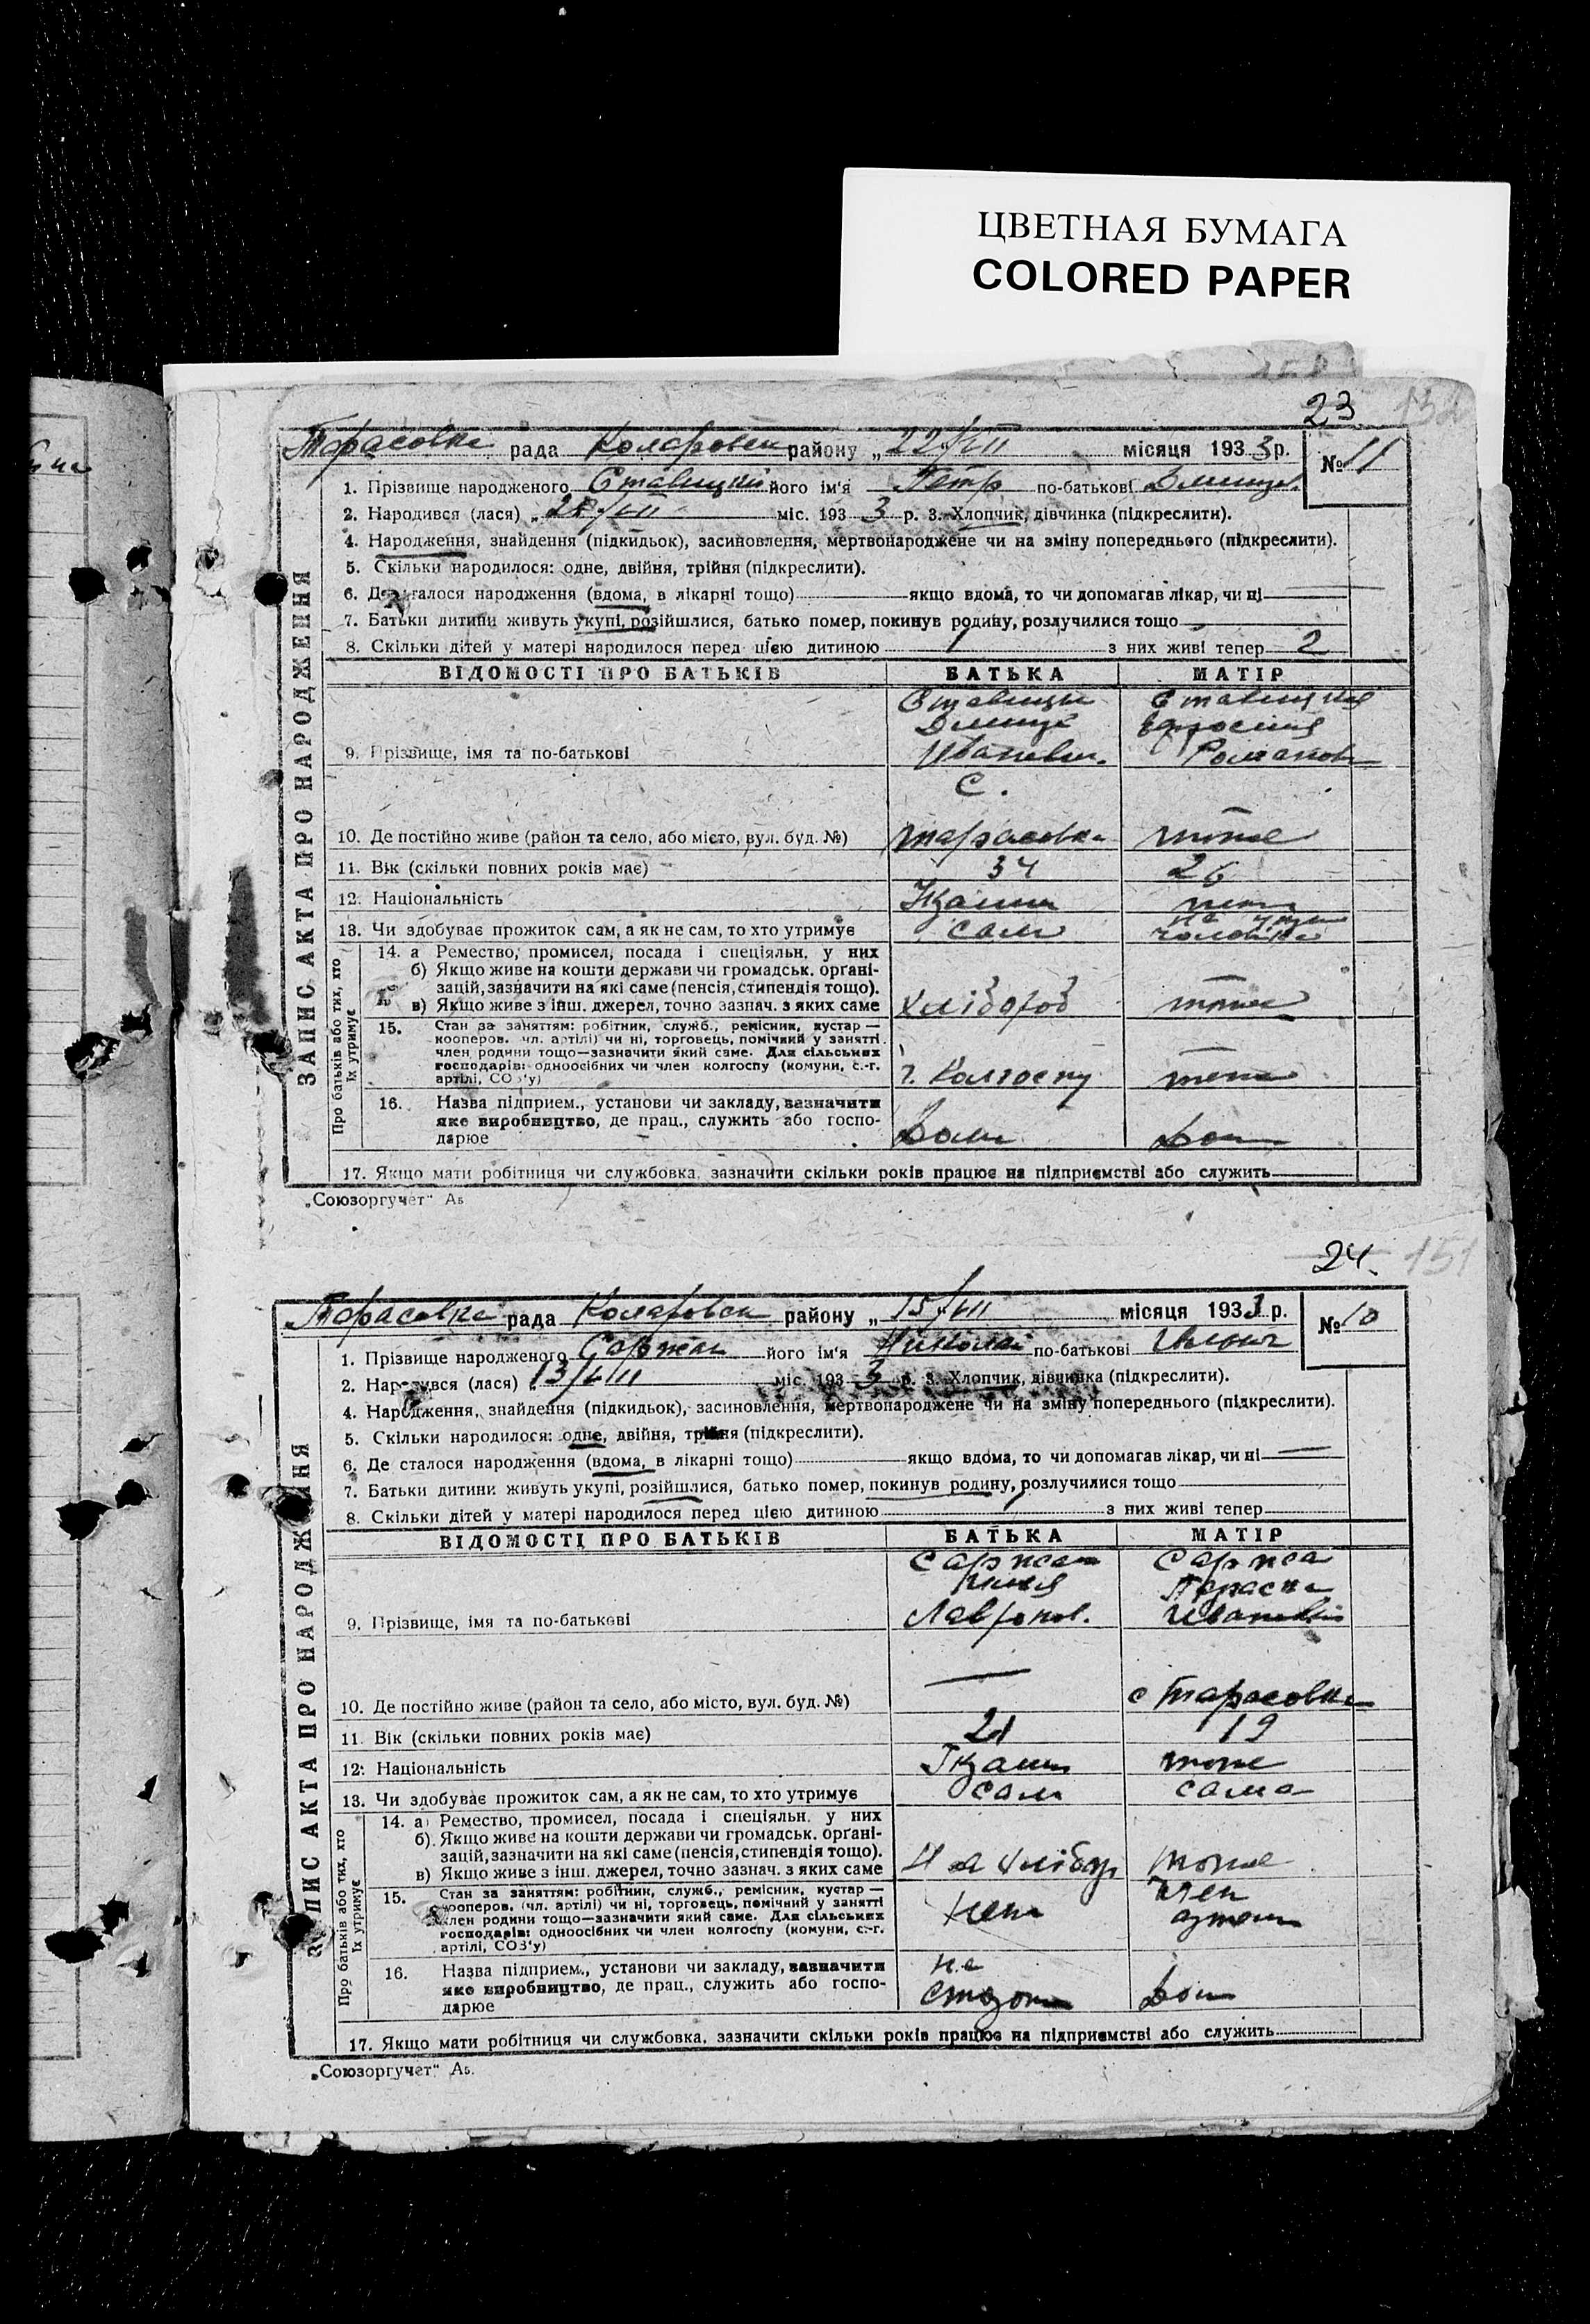 ЦВЕТНАЯ БУМАГА
COLORED PAPER
23
Тарасовка рада Коларовск району „22"/VII місяця 1933 р. № 11
ЗАПИС АКТА ПРО НАРОДЖЕННЯ
1. Прізвище народженого Ставицкий його ім'я Петр по-батькові
2. Народився (лася) „ міс. 1933 р. 3. Хлопчик, дівчинка (підкреслити).
4. Народження, знайдення (підкидьок), засиновлення, мертвонароджене чи на зміну попереднього (підкреслити).
5. Скільки народилося: одне, двійня, трійня (підкреслити).
6. Де сталося народження (вдома, в лікарні тощо) якщо вдома, то чи допомагав лікар, чи ні —
7. Батьки дитини живуть укупі, розійшлися, батько помер, покинув родину, розлучилися тощо
8. Скільки дітей у матері народилося перед цією дитиною 1 з них живі тепер 2
ВІДОМОСТІ ПРО БАТЬКІВ БАТЬКА МАТІР
Ставицкая
9. Прізвище, імя та по-батькові Романов
С.
10. Де постійно живе (район та село, або місто, вул. буд. №) Тарасовка тоже
11. Вік (скільки повних років має) 34 26
12. Національність
13. Чи здобуває прожиток сам, а як не сам, то хто утримує сам
Про батьків або тих, хто їх утримує
14. а Ремество, промисел, посада і спеціяльн. у них
б) Якщо живе на кошти держави чи громадськ. орґані-
зацій, зазначити на які саме (пенсія, стипендія тощо).
в) Якщо живе з інш. джерел, точно зазнач. з яких саме Хлібороб тоже
15. Стан за заняттям: робітник, служб., ремісник, кустар —
кооперов. чл. артілі) чи ні, торговець, помічний у занятті
член родини тощо—зазначити який саме. Для сільських
господарів: одноосібних чи член колгоспу (комуни, с.-г.
артілі, СОЗ'у) ч. Колгоспу
16. Назва підприєм., установи чи закладу, зазначити
яке виробництво, де прац., служить або госпо-
дарює
17. Якщо мати робітниця чи службовка, зазначити скільки років працює на підприємстві або служить
„Союзоргучет" Аб
24 151
Тарасовка рада Коларовск району „15"/VII місяця 1933 р. № 10
ЗАПИС АКТА ПРО НАРОДЖЕННЯ
1. Прізвище народженого Саржан його ім'я Николай по-батькові
2. Народився (лася) „13/VII міс. 1933 р. 3. Хлопчик, дівчинка (підкреслити).
4. Народження, знайдення (підкидьок), засиновлення, мертвонароджене чи на зміну попереднього (підкреслити).
5. Скільки народилося: одне, двійня, трійня (підкреслити).
6. Де сталося народження (вдома, в лікарні тощо) якщо вдома, то чи допомагав лікар, чи ні —
7. Батьки дитини живуть укупі, розійшлися, батько помер, покинув родину, розлучилися тощо
8. Скільки дітей у матері народилося перед цією дитиною з них живі тепер
ВІДОМОСТІ ПРО БАТЬКІВ БАТЬКА МАТІР
Саржан Саржа
9. Прізвище, імя та по-батькові
10. Де постійно живе (район та село, або місто, вул. буд. №) — с Тарасовка
11. Вік (скільки повних років має) 21 19
12. Національність тоже
13. Чи здобуває прожиток сам, а як не сам, то хто утримує сам сама
Про батьків або тих, хто їх утримує
14. а) Ремество, промисел, посада і спеціяльн. у них
б) Якщо живе на кошти держави чи громадськ. орґані-
зацій, зазначити на які саме (пенсія, стипендія тощо).
в) Якщо живе з інш. джерел, точно зазнач. з яких саме тоже
15. Стан за заняттям: робітник, служб., ремісник, кустар —
кооперов. (чл. артілі) чи ні, торговець, помічний у занятті
член родини тощо—зазначити який саме. Для сільських
господарів: одноосібних чи член колгоспу (комуни, с.-г.
артілі, СОЗ'у) член
16. Назва підприєм., установи чи закладу, зазначити
яке виробництво, де прац., служить або госпо-
дарює
17. Якщо мати робітниця чи службовка, зазначити скільки років працює на підприємстві або служить
„Союзоргучет" Аб.